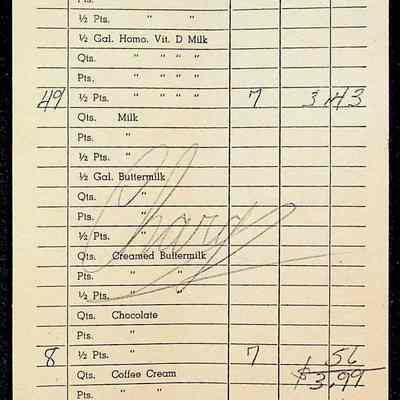 Pts. " "
½ Pts. " "
½ Gal. Homo. Vit. D Milk
Qts. " " " "
Pts. " " " "
49 ½ Pts. " " " " 7 3 43
Qts. Milk
Pts. "
½ Pts. "
½ Gal. Buttermilk
Qts. "
Pts. "
½ Pts. "
Charge
Qts. Creamed Buttermilk
Pts. " "
½ Pts. " "
Qts. Chocolate
Pts. "
8 ½ Pts. " 7 .56
Qts. Coffee Cream $3.99
Pts. " "